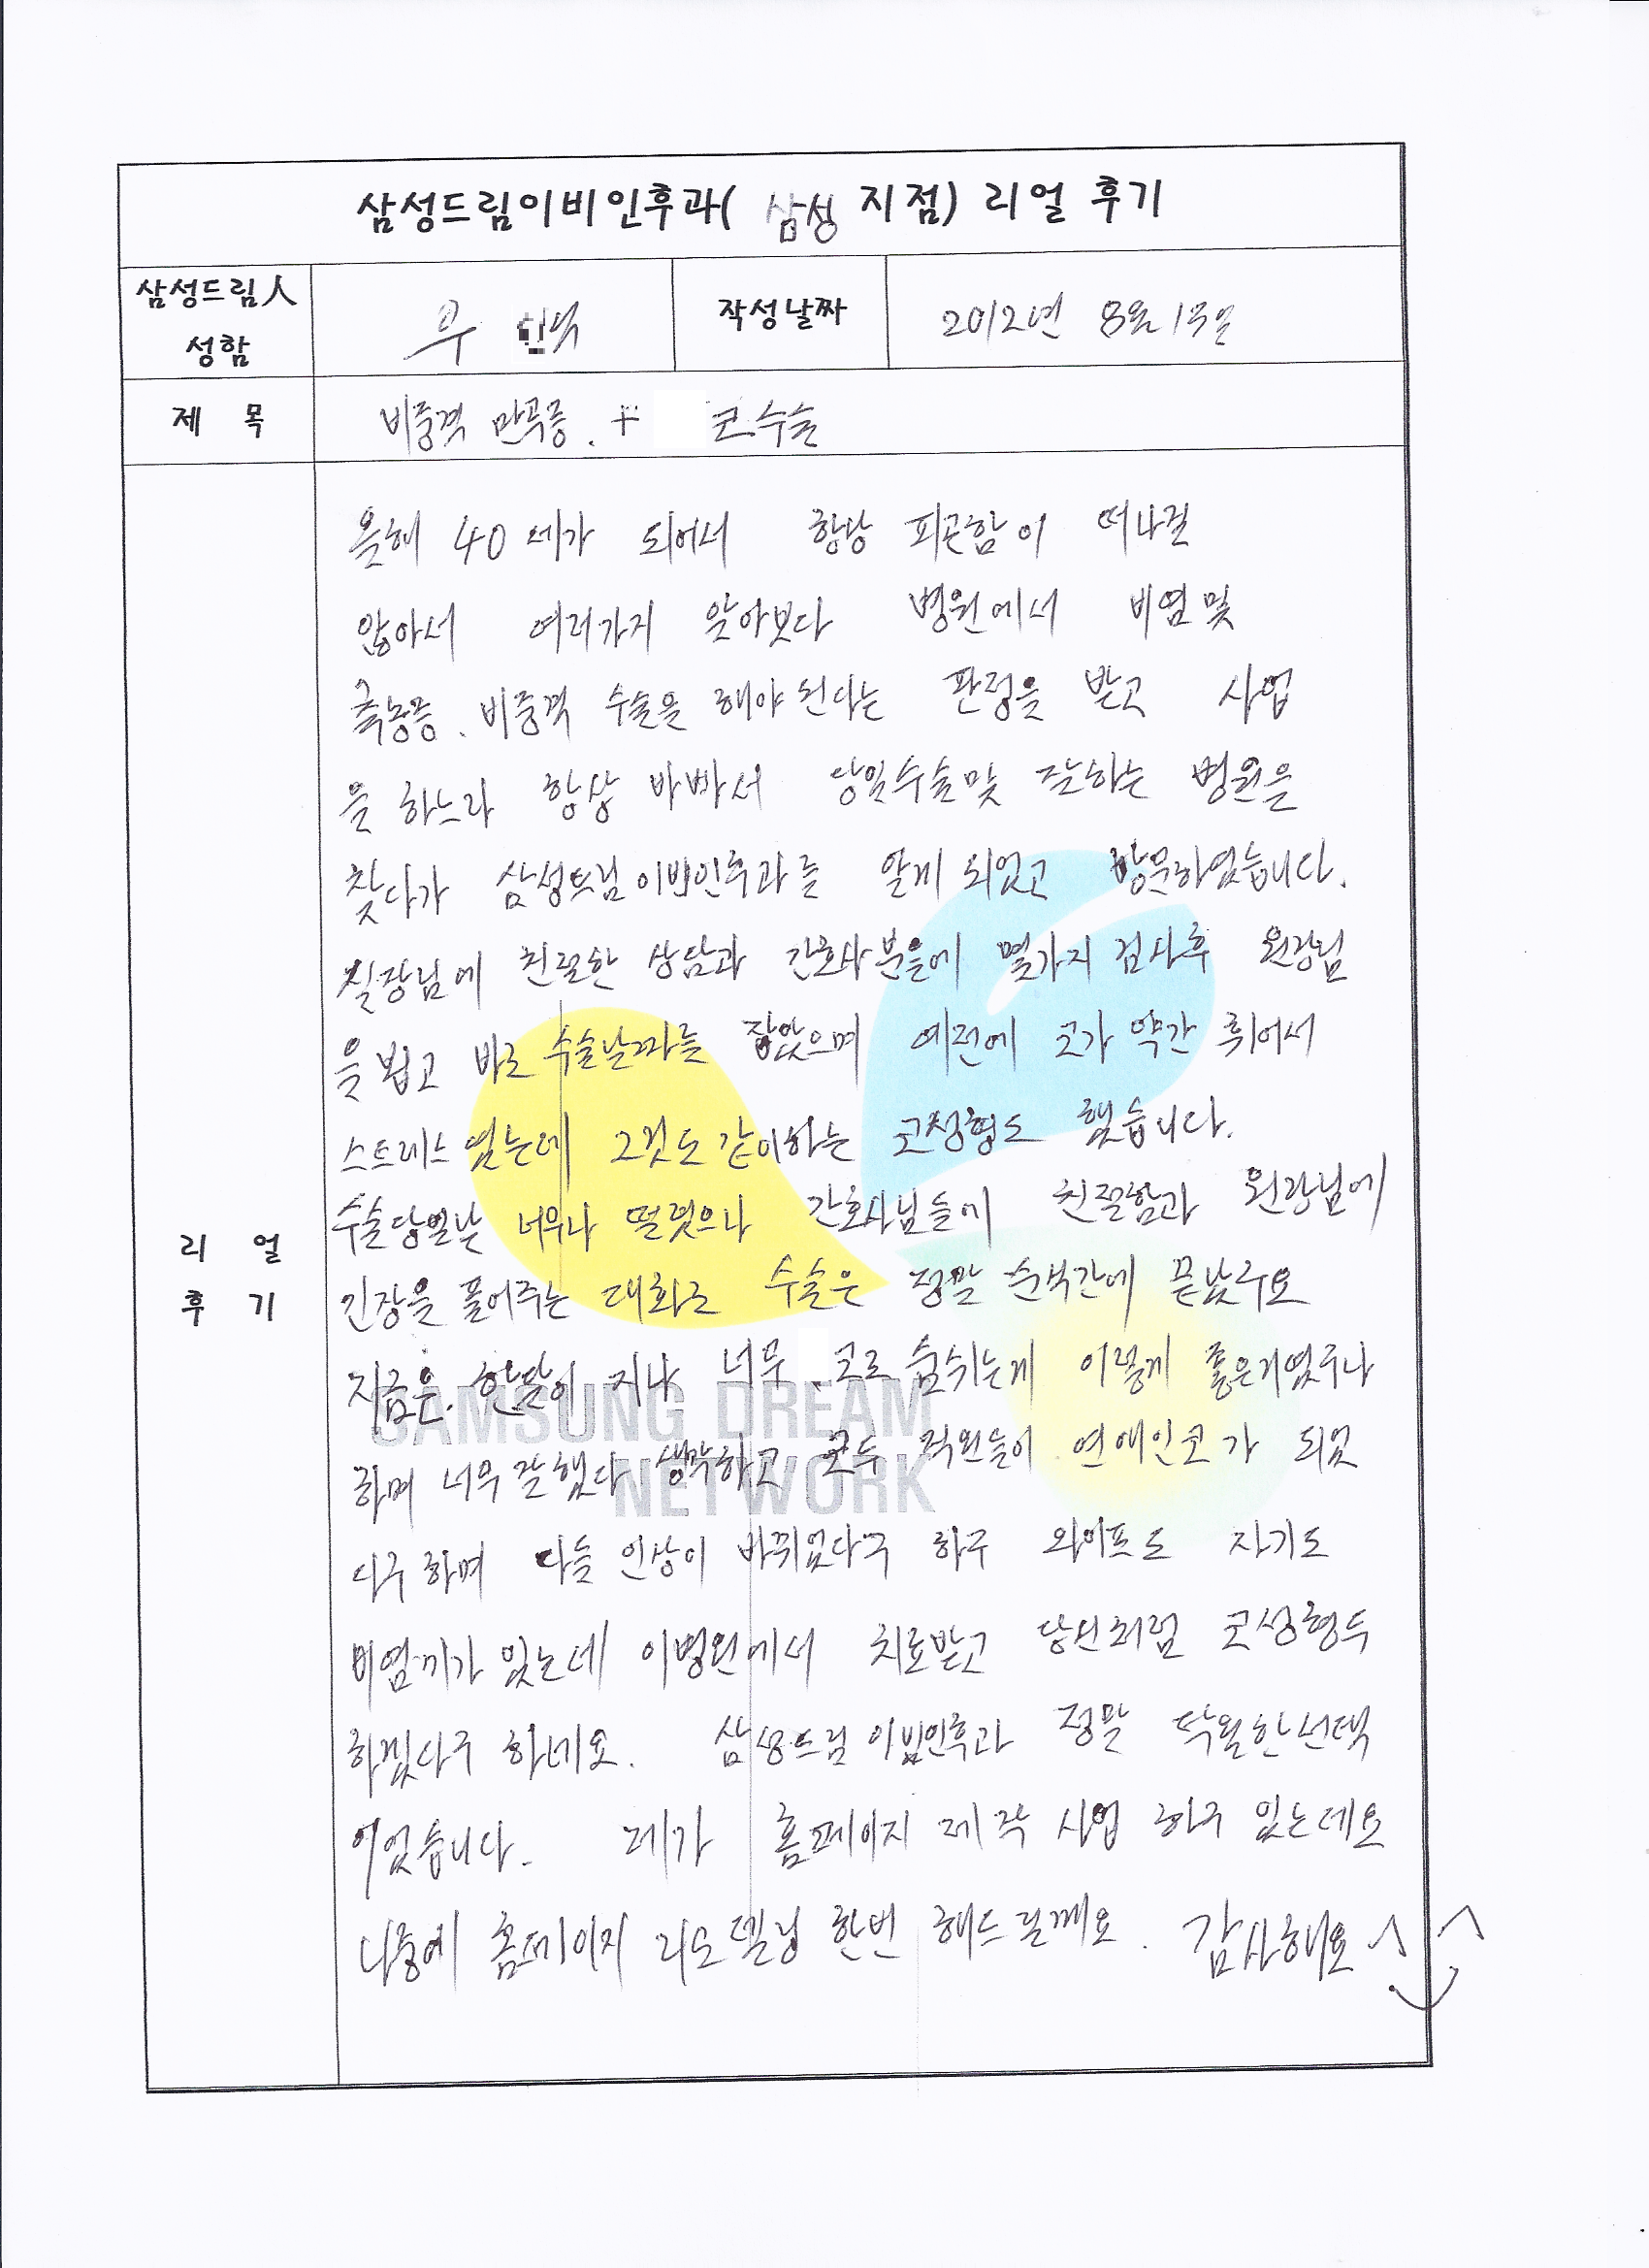 삼성드림이비인후과( 삼성 지점) 리얼 후기
삼성드림人 성함
우
작성날짜
2012년 8월 1일
제 목
비중격 만곡증. + 코수술
리 얼
후 기
올해 40세가 되어서 항상 피곤함이 떠나질
않아서 여러가지 알아보다 병원에서 비염및
축농증. 비중격 수술을 해야된다는 판정을 받고 사업
을 하느라 항상 바빠서 당일수술및 잘하는 병원을
찾다가 삼성드림이빈인후과를 알게 되었고 방문하였습니다.
실장님에 친절한 상담과 간호사분들에 몇가지 검사후 원장님
을 뵙고 바로 수술날짜를 잡았으며 예전에 코가 약간 휘어서
스트레스 였는데 그것도 같이하는 코성형도 했습니다.
수술당일날 너무나 떨렸으나 간호사님들에 친절함과 원장님에
긴장을 풀어주는 대화로 수술은 정말 순식간에 끝났구요
지금은. 한달이 지나 너무. 코로 숨쉬는게 이렇게 좋은거였구나
하며 너무 잘했다 생각하고 모두 직원들이 연애인코가 되었
다구 하며 다들 인상이 바뀌었다구 하구 와이프도 자기도
비염끼가 있는데 이병원에서 치료받고 당신처럼 코성형두
하겠다구 하네요. 삼성드림이빈인후과 정말 탁월한선택
이었습니다. 제가 홈페이지 제작 사업 하구 있는데요
나중에 홈페이지 리모델링 한번 해드릴께요. 감사해요^^
SAMSUNG DREAM
NETWORK